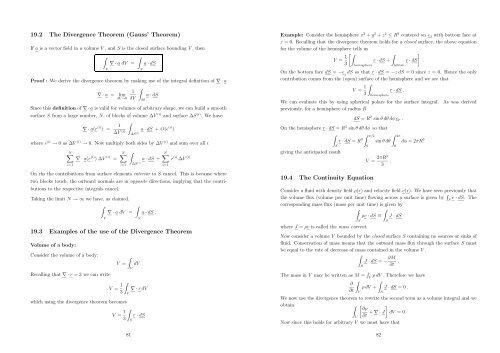 19.2 The Divergence Theorem (Gauss' Theorem)
If a is a vector field in a volume V, and S is the closed surface bounding V, then
∫_V ∇ · a dV = ∫_S a · dS
Proof : We derive the divergence theorem by making use of the integral definition of ∇ · a
∇ · a = lim_{δV→0} 1/δV ∫_{δS} a · dS.
Since this definition of ∇ · a is valid for volumes of arbitrary shape, we can build a smooth
surface S from a large number, N, of blocks of volume ΔV^(i) and surface ΔS^(i). We have
∇ · a(r^(i)) = 1/ΔV^(i) ∫_{ΔS^(i)} a · dS + O(ε^(i))
where ε^(i) → 0 as ΔV^(i) → 0. Now multiply both sides by ΔV^(i) and sum over all i
∑_{i=1}^{N} ∇ · a(r^(i)) ΔV^(i) = ∑_{i=1}^{N} ∫_{ΔS^(i)} a · dS + ∑_{i=1}^{N} ε^(i) ΔV^(i)
On rhs the contributions from surface elements interior to S cancel. This is because where
two blocks touch, the outward normals are in opposite directions, implying that the contri-
butions to the respective integrals cancel.
Taking the limit N → ∞ we have, as claimed,
∫_V ∇ · a dV = ∫_S a · dS .
19.3 Examples of the use of the Divergence Theorem
Volume of a body:
Consider the volume of a body:
V = ∫_V dV
Recalling that ∇ · r = 3 we can write
V = 1/3 ∫_V ∇ · r dV
which using the divergence theorem becomes
V = 1/3 ∫_S r · dS
81
Example: Consider the hemisphere x² + y² + z² ≤ R² centered on e₃ with bottom face at
z = 0. Recalling that the divergence theorem holds for a closed surface, the above equation
for the volume of the hemisphere tells us
V = 1/3 [ ∫_hemisphere r · dS + ∫_bottom r · dS ] .
On the bottom face dS = −e₃ dS so that r · dS = −z dS = 0 since z = 0. Hence the only
contribution comes from the (open) surface of the hemisphere and we see that
V = 1/3 ∫_hemisphere r · dS .
We can evaluate this by using spherical polars for the surface integral. As was derived
previously, for a hemisphere of radius R
dS = R² sin θ dθ dφ e_r .
On the hemisphere r · dS = R³ sin θ dθ dφ so that
∫_S r · dS = R³ ∫_0^{π/2} sin θ dθ ∫_0^{2π} dφ = 2πR³
giving the anticipated result
V = 2πR³/3
19.4 The Continuity Equation
Consider a fluid with density field ρ(r) and velocity field v(r). We have seen previously that
the volume flux (volume per unit time) flowing across a surface is given by ∫_S v · dS. The
corresponding mass flux (mass per unit time) is given by
∫_S ρv · dS ≡ ∫_S J · dS
where J = ρv is called the mass current.
Now consider a volume V bounded by the closed surface S containing no sources or sinks of
fluid. Conservation of mass means that the outward mass flux through the surface S must
be equal to the rate of decrease of mass contained in the volume V.
∫_S J · dS = −∂M/∂t .
The mass in V may be written as M = ∫_V ρ dV. Therefore we have
∂/∂t ∫_V ρ dV + ∫_S J · dS = 0 .
We now use the divergence theorem to rewrite the second term as a volume integral and we
obtain
∫_V [ ∂ρ/∂t + ∇ · J ] dV = 0
Now since this holds for arbitrary V we must have that
82